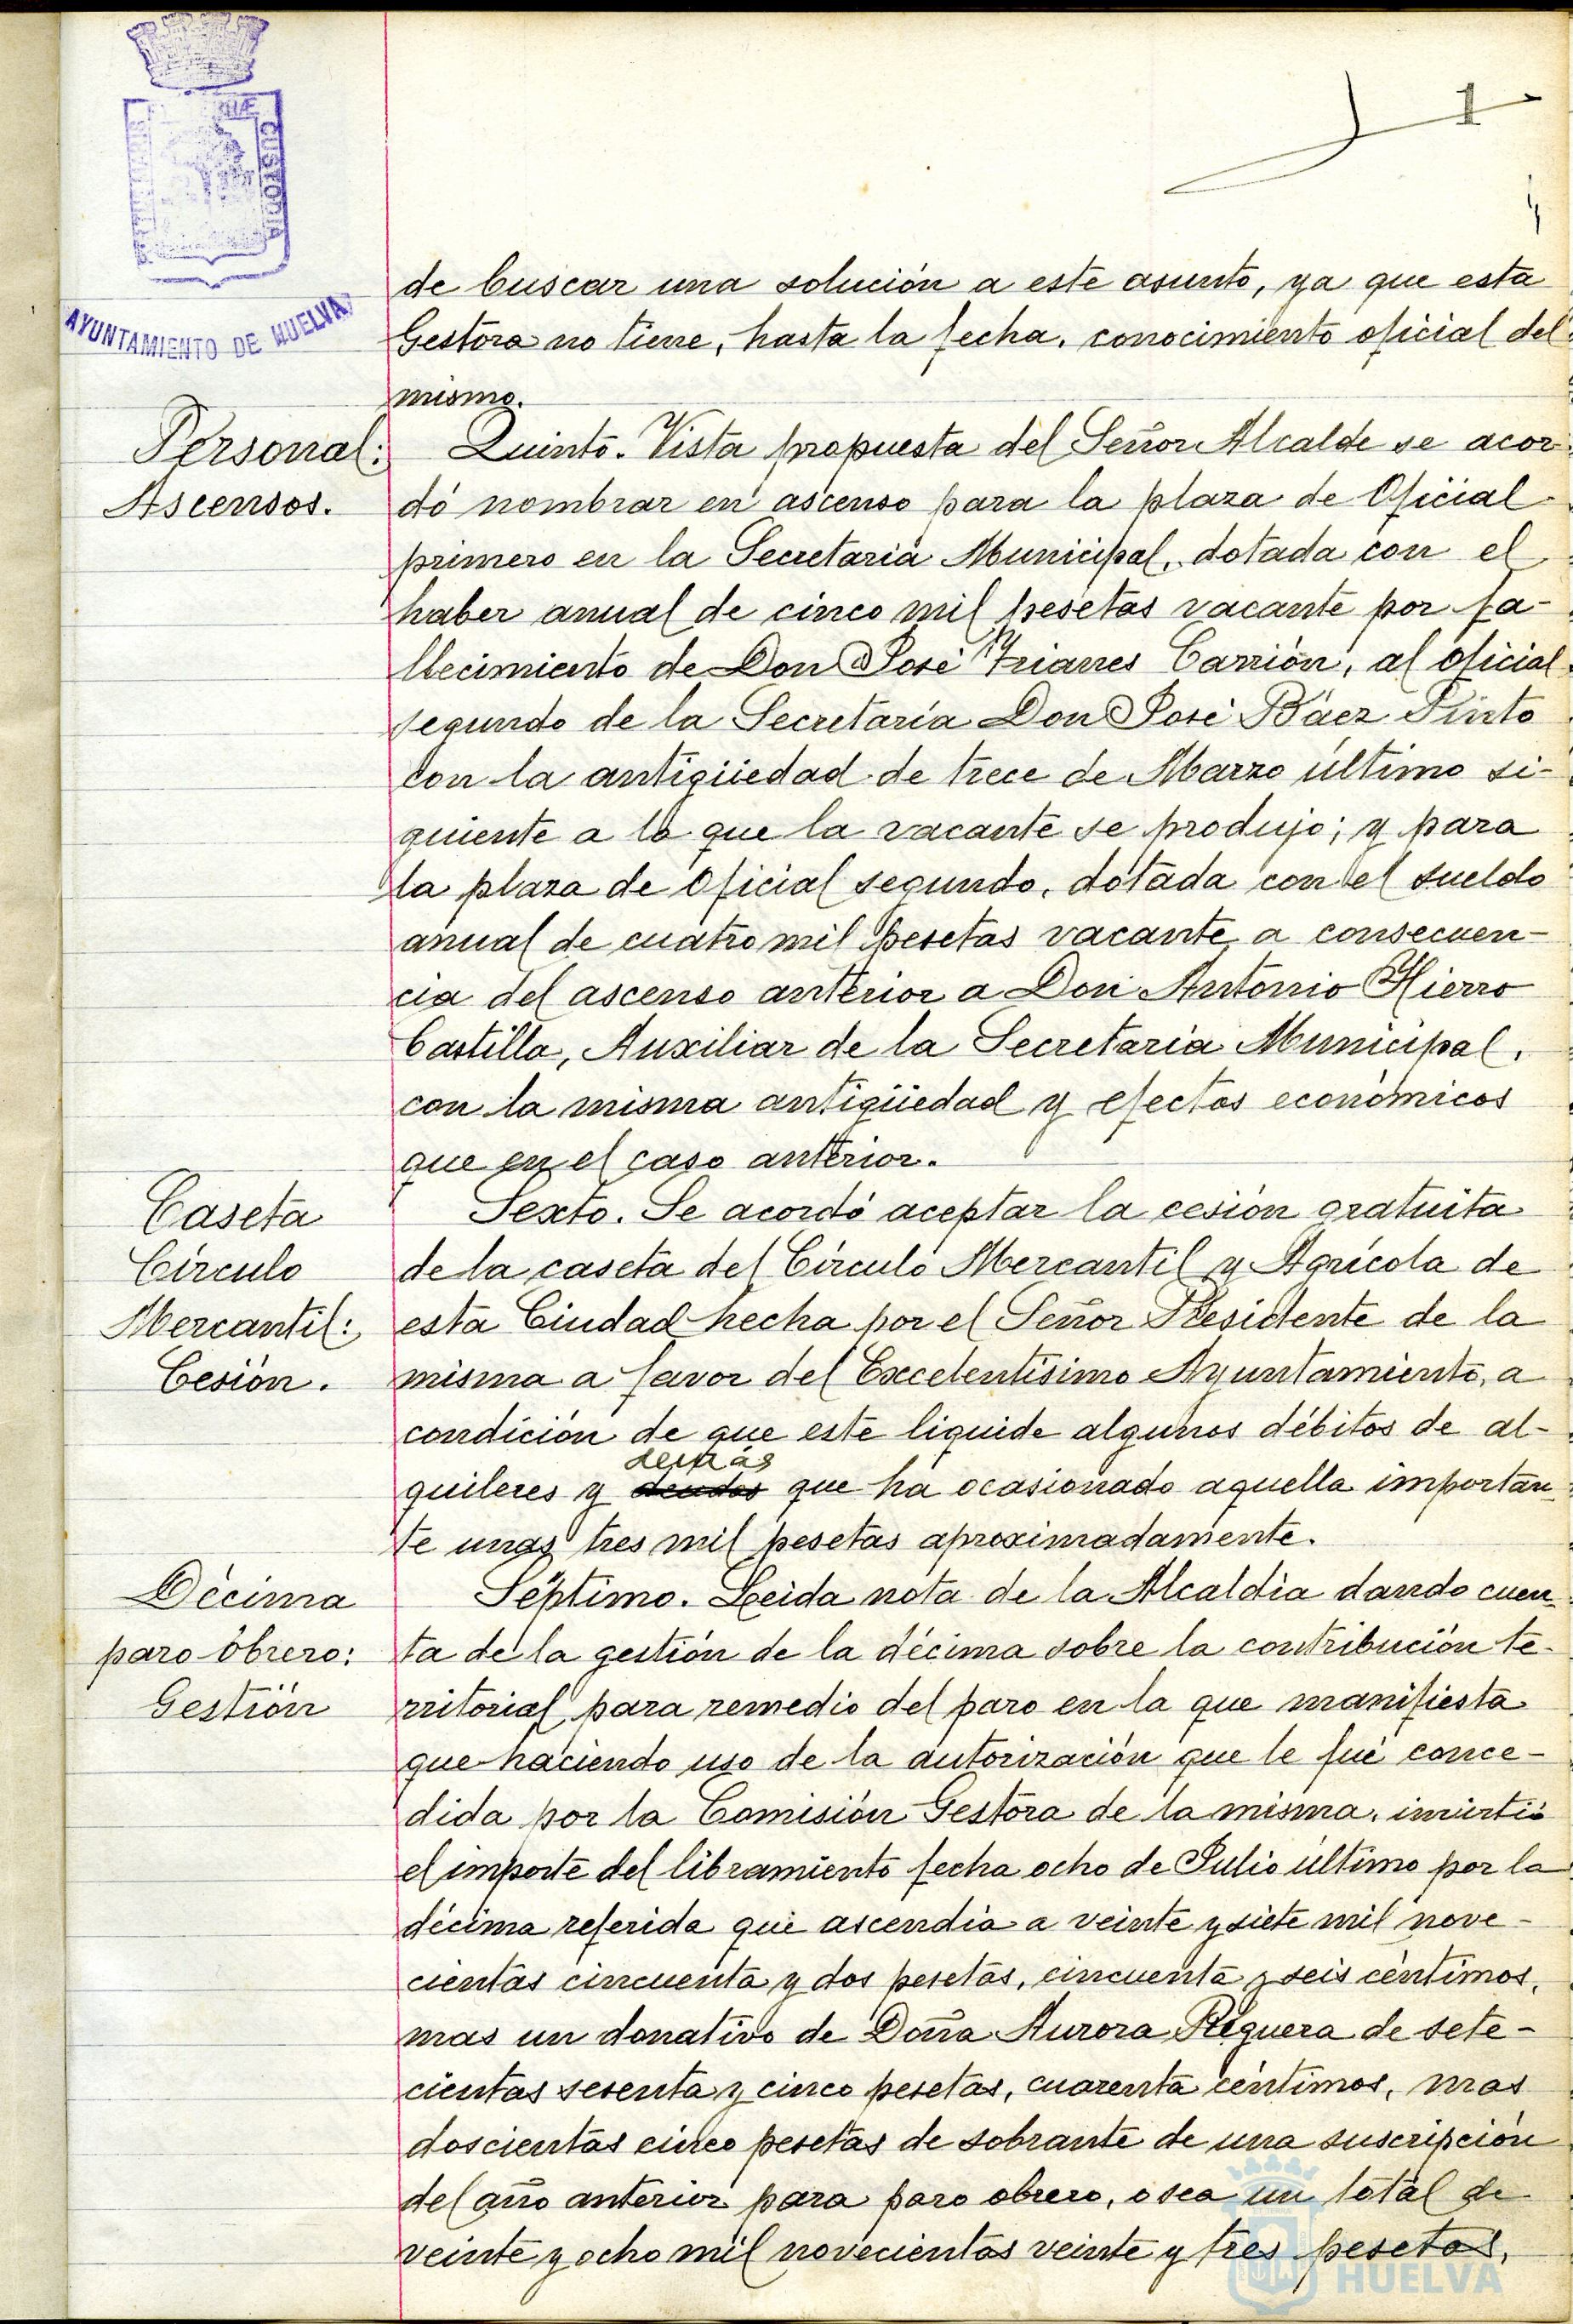 1
de buscar una solución a este asunto, ya que esta
Gestora no tiene, hasta la fecha, conocimiento oficial del
mismo.
Personal:
Ascensos.
Quinto. Vista propuesta del Señor Alcalde se acor
dó nombrar en ascenso para la plaza de Oficial
primero en la Secretaría Municipal, dotada con el
haber anual de cinco mil pesetas vacante por fa-
llecimiento de Don José Trianes Carrión, al oficial
segundo de la Secretaría Don José Báez Pinto
con la antigüedad de trece de Marzo último si-
guiente a la que la vacante se produjo; y para
la plaza de Oficial segundo, dotada con el sueldo
anual de cuatro mil pesetas vacante a consecuen-
cia del ascenso anterior a Don Antonio Hierro
Castilla, Auxiliar de la Secretaría Municipal,
con la misma antigüedad y efectos económicos
que en el caso anterior.
Caseta
Círculo
Mercantil:
Cesión.
Sexto. Se acordó aceptar la cesión gratuita
de la caseta del Círculo Mercantil y Agrícola de
esta Ciudad hecha por el Señor Presidente de la
misma a favor del Excelentísimo Ayuntamiento, a
condición de que este liquide algunos débitos de al-
demás
quileres y deudas que ha ocasionado aquella importan
te unas tres mil pesetas aproximadamente.
Décima
paro obrero:
Gestión
Séptimo. Leida nota de la Alcaldía dando cuen
ta de la gestión de la décima sobre la contribución te-
rritorial para remedio del paro en la que manifiesta
que haciendo uso de la autorización que le fué conce-
dida por la Comisión Gestora de la misma, invirtió
el importe del libramiento fecha ocho de Julio último por la
décima referida que ascendía a veinte y siete mil nove-
cientas cincuenta y dos pesetas, cincuenta y seis céntimos,
mas un donativo de Doña Aurora Reguera de sete-
cientas sesenta y cinco pesetas, cuarenta céntimos, mas
doscientas cinco pesetas de sobrante de una suscripción
del año anterior para paro obrero, o sea un total de
veinte y ocho mil novecientas veinte y tres pesetas,
AYUNTAMIENTO DE HUELVA
CUSTODIA
HUELVA